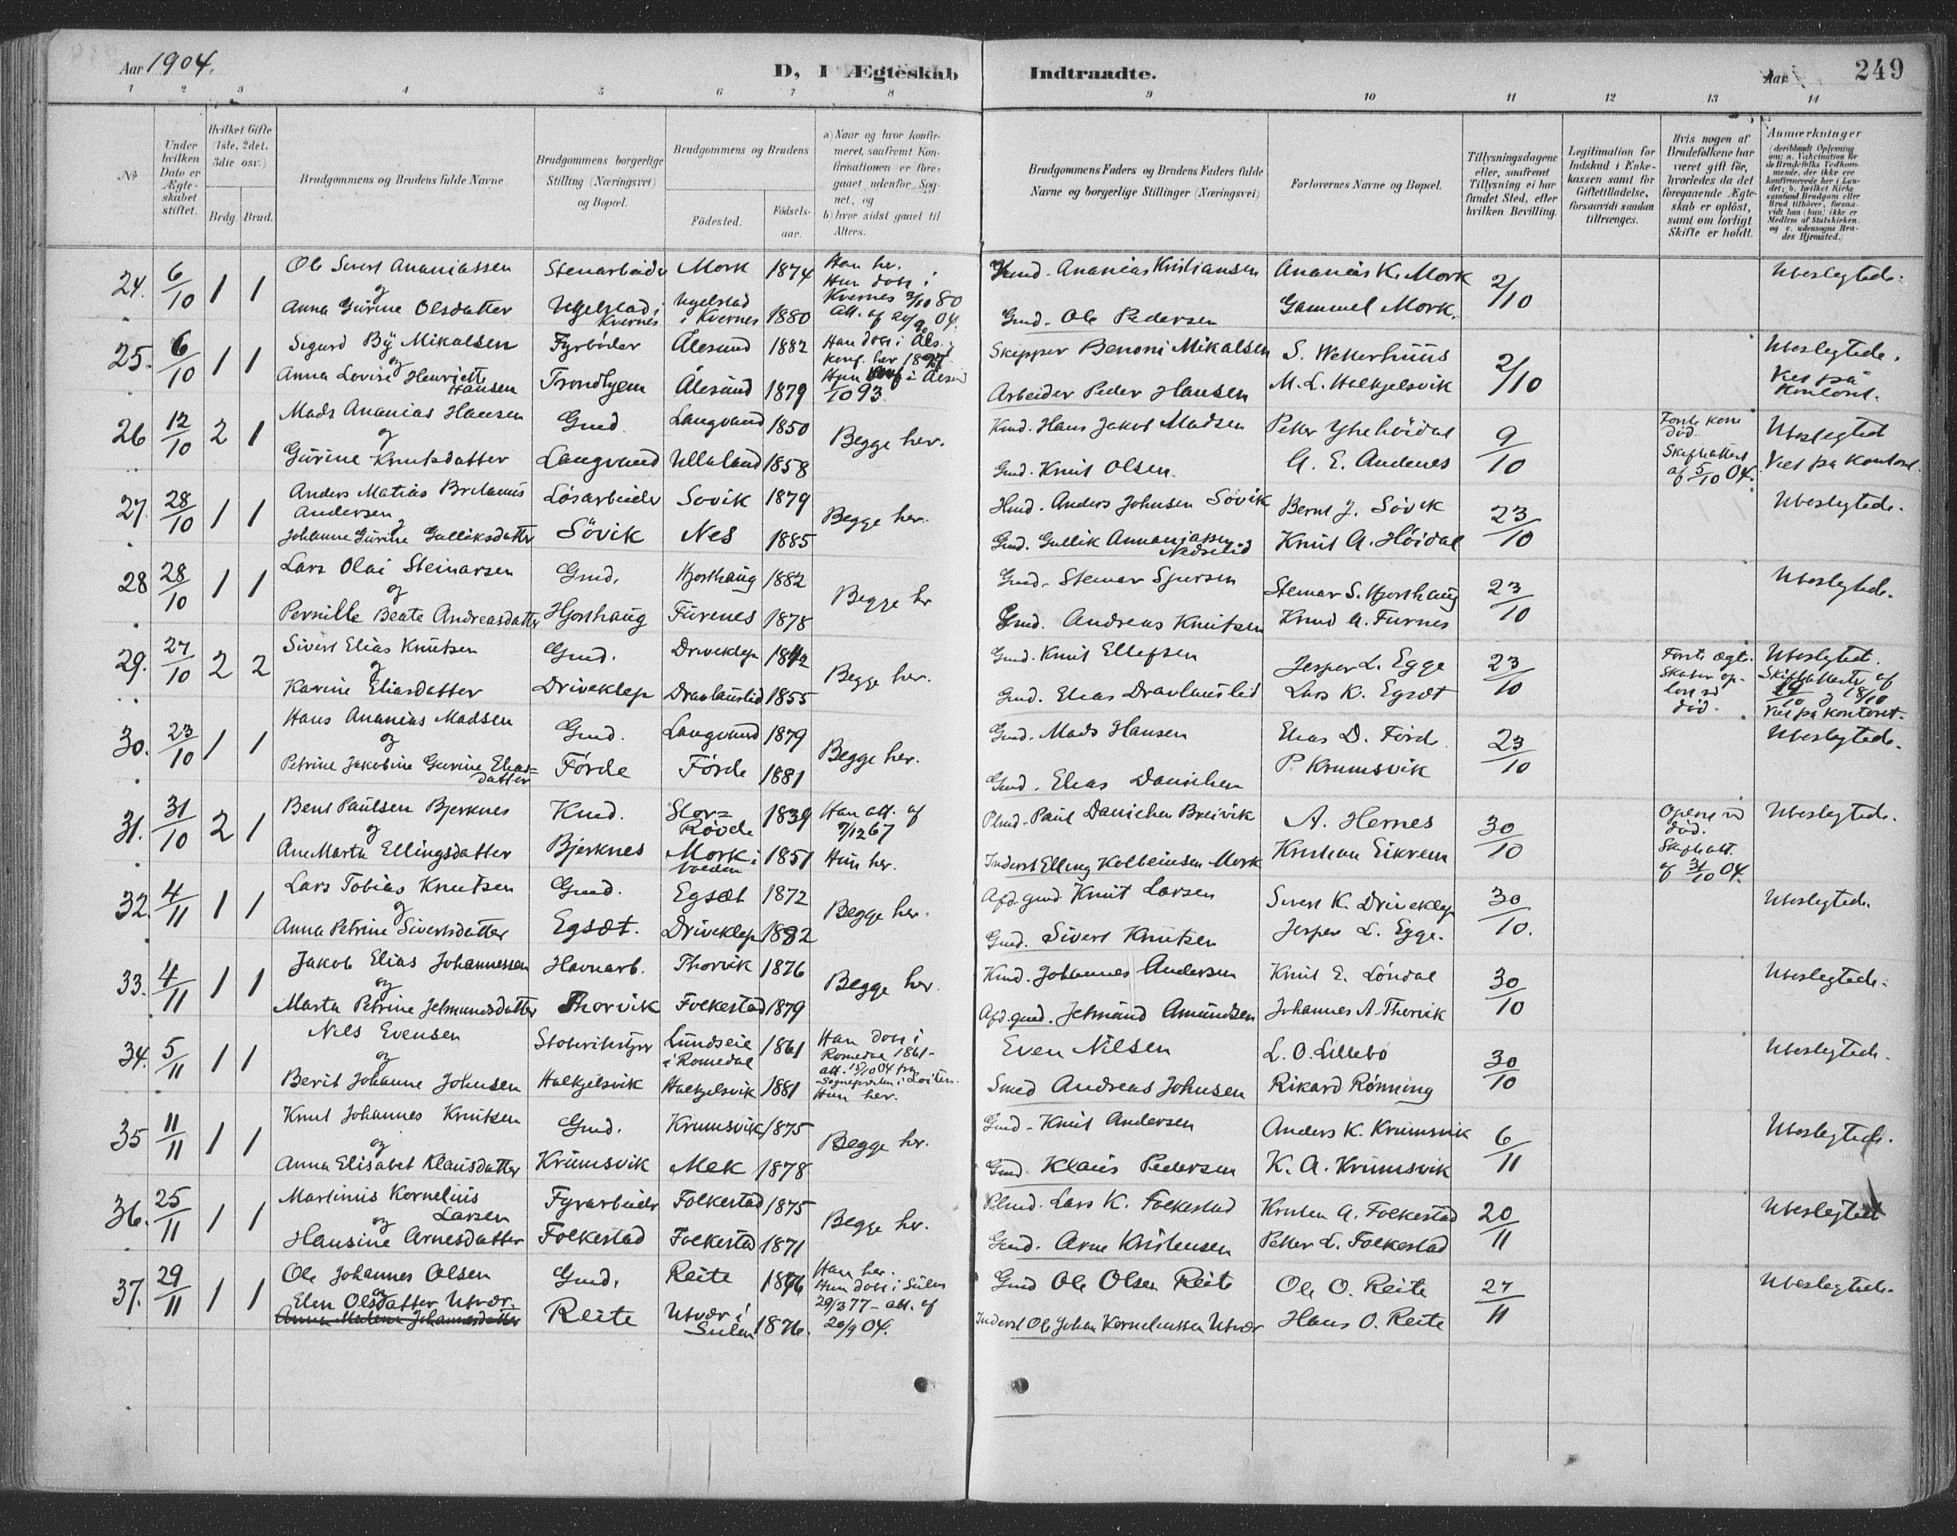 Aar 1904.
D, I Ægteskab Indtraadte.
Aar
249
1 2 3 4 5 6 7 8 9 10 11 12 13 14
No
Under hvilken Dato er Ægteskabet stiftet.
Hvilket Gifte (1ste, 2det, 3die osv.)
Brdg. Brud.
Brudgommens og Brudens fulde Navne.
Brudgommens borgerlige Stilling (Næringsvei) og Bopæl.
Brudgommens og Brudens
Fødested.
Fødsels-aar.
a) Naar og hvor konfirmeret, saafremt Konfirmationen er foregaaet udenfor Sognet, og
b) hvor sidst gaaet til Alters.
Brudgommens Faders og Brudens Faders fulde Navne og borgerlige Stillinger (Næringsvei)
Forlovernes Navne og Bopæl.
Tillysningsdagene eller, saafremt Tillysning ei har fundet Sted, efter hvilken Bevilling.
Legitimation for Indskud i Enkekassen samt for Giftetilladelse, forsaavidt saadan tiltrænges.
Hvis nogen af Brudefolkene har været gift før, hvorledes da det foregaaende Ægteskab er opløst, samt om lovligt Skifte er holdt.
Anmærkninger (deriblandt Oplysning om: a. Vakcination for de Brudefolks Vedkommende, der ikke ere konfirmerede her i Landet; b. hvilket Kirkesamfund Brudgom eller Brud tilhører, forsaavidt han (hun) ikke er Medlem af Statskirken, og c. udensogns Brudes Hjemsted.
24. 6/10 1 1 Ole Sivert Ananiassen Stenarbeider Mork 1874 Han her. Gmd. Ananias Kristiansen Ananias K. Mork 2/10 Ubeslegtede.
og Hun døbt i Kvernes 3/10 80
Anna Gurine Olsdatter Ugelstad i Kvernes Ugelstad i Kvernes 1880 Att. af 24/9 04. Gmd. Ole Pedersen Gammel Mork.
25. 6/10 1 1 Sigurd By Mikalsen Fyrbøder Ålesund 1882 Han døbt i Åls. konf. her 1897 Skipper Benoni Mikalsen S. Wetterhuus 2/10 Ubeslegtede.
og
Anna Lovise Henriette Hansen Trondhjem Ålesund 1879 Hun konf i Ålesund /10 93 Arbeider Peder Hansen M. L. Halkjelsvik Viet på Kontoret.
26 12/10 2 1 Mads Ananias Hansen Gmd. Langvand 1850 Begge her. Kmd. Hans Jakob Madsen Peter Ytrehöidal 9/10 Første kone död. Ubeslegted
og
Gurine Knutsdatter Langvand Ullaland 1858 Gmd. Knut Olsen. A. E. Andenes Skifteattest af 5/10 04. Viet på kontoret.
27. 28/10 1 1 Anders Matias Andersen Løsarbeider Sovik 1879 Begge her. Hmd. Anders Johnsen Sövik Bernt J. Sövik 23/10 Ubeslegtede.
og
Johanne Gurine Gulliksdatter Sövik Nes 1885 Gmd. Gullik Annaniassen Knut A. Höidal
28 28/10 1 1 Lars Olai Steinarsen Gmd. Hjorthaug 1882 Begge her Gmd. Steinar Sjursen Steinar S. Hjorthaug 23/10 Ubeslegtede.
og
Pernille Beate Andreasdatter Hjorthaug Furenes 1878 Gmd. Andreas Knutsen Knud A. Furnes
29. 27/10 2 2 Sivert Elias Knutsen Gmd. Driveklep 1842 Begge her. Gmd. Knut Ellefsen Jesper L. Egge 23/10 Ubeslegted.
og
Karine Eliasdatter Driveklep Dravlauslid 1855 Gmd. Elias Dravlauslid Lars K. Egsæt død. 18/10 Viet på kontoret.
30. 23/10 1 1 Hans Ananias Madsen Gmd. Langvand 1879 Begge her. Gmd. Mads Hansen Elias D. Förde 23/10 Ubeslegtede.
og
Petrine Jakobine Gurine Eliasdatter Förde Förde 1881 Gmd. Elias Danielsen P. Krumsvik
31. 31/10 2 1 Bent Paulsen Bjerknes Kmd. Stor=Røvde 1839 Han att. af 7/12 67 Plmd. Paul Danielsen Breivik A. Hernes 30/10 Opløst v död. Ubeslegtede.
og
Ane Marta Ellingsdatter Bjerknes Mork i Volden 1851 Hun her. Inderst Elling Kolbeinsen Mork Kristian Eikrem Skifteatt. af 3/10 04.
32. 4/11 1 1 Lars Tobias Knutsen Gmd. Egsæt 1872 Begge her. Afd. gmd. Knut Larsen Sivert K. Driveklep 30/10. Ubeslegtede
og
Anna Petrine Sivertsdatter Egsæt. Driveklep 1882 Gmd. Sivert Knutsen Jesper L. Egge.
33. 4/11 1 1 Jakob Elias Johannessen Havnarb. Thorvik 1876 Begge her. Kmd. Johannes Andersen Knut E. Løndal 30/10 Ubeslegtede.
og
Marta Petrine Jetmundsdatter Thorvik Folkestad 1879 Afd. gmd. Jetmund Amundsen Johannes A. Thorvik
34. 5/11 1 1 Nils Evensen Lundseie i Romedal 1861 Han døbt i Romedal 1861- att. 15/10 04 fra Sognepresten i Løiten. Even Nilsen L. O. Lillebø 30/10 Ubeslegtede.
og
Berit Johanne Johnsen Halkjelsvik Halkjelsvik 1881 Hun her. Smed Andreas Johnsen Rikard Rønning
35 11/11 1 1 Knut Johannes Knutsen Gmd. Krumsvik 1875 Begge her. Gmd. Knut Andersen Anders K. Krumsvik 6/11 Ubeslegtede.
og
Anna Elisabet Klausdatter Krumsvik Mek 1878 Gmd Klaus Pedersen K. A. Krumsvik
36. 25/11 1 1 Martinus Kornelius Larsen Fyrarbeider Folkestad 1875 Begge her. Plmd. Lars K. Folkestad Kristen A. Folkestad 20/11 Ubeslegted
og
Hansine Arnesdatter Folkestad Folkestad 1871 Gmd. Arne Kristensen Petter L. Folkestad
37. 29/11 1 1 Ole Johannes Olsen Gmd. Reite 1876 Han her. Gmd Ole Olsen Reite Ole O. Reite 27/11 Ubeslegtede.
og Hun døbt i Sulen
Elen Olsdatter Utvær. Reite Utvær i Sulen 1876. 29/3 77 - att. af 20/9 04. Inderst Ole Johan Korneliussen Utvær Hans O. Reite
Anna Malene Johannesdatter